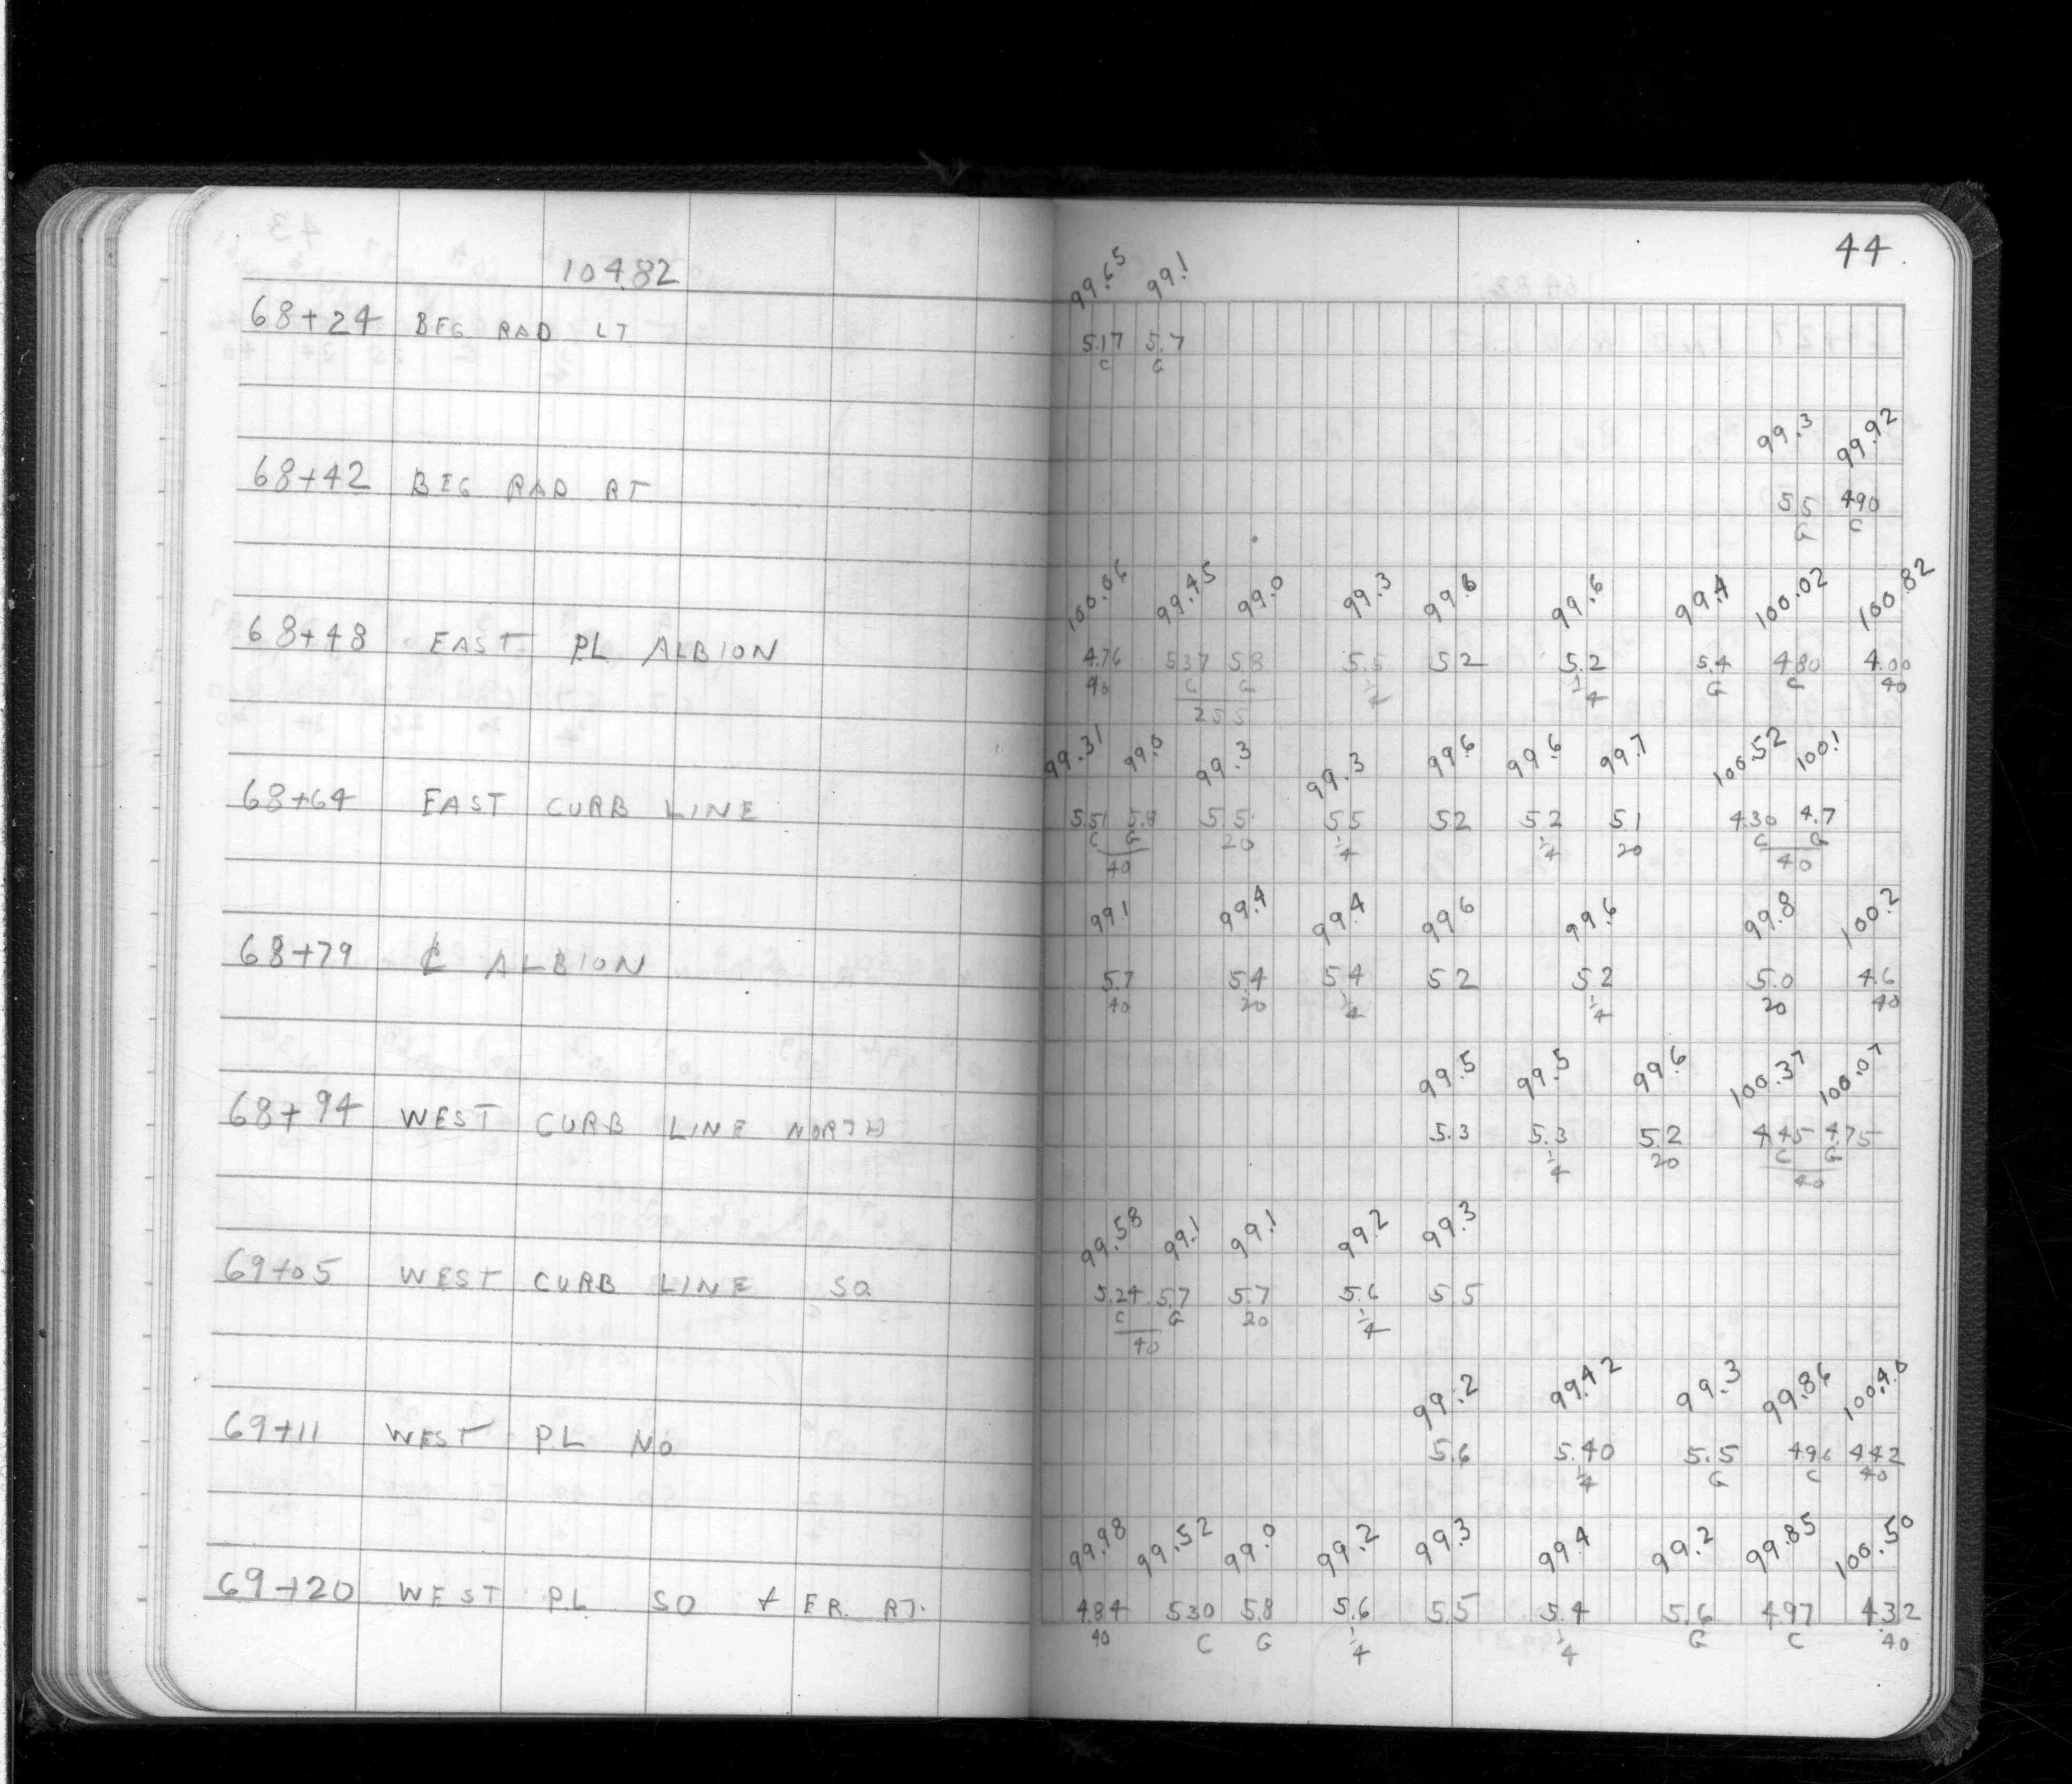 44
104.82
99.65 99.1
68+24 BEG RAD LT 5.17 5.7
C G
99.3 99.92
68+42 BEG RAD RT 5.5 4.90
G C
100.06 99.45 99.0 99.3 99.6 99.6 99.4 100.02 100.82
68+48 EAST PL ALBION 4.76 5.37 5.8 5.5 5.2 5.2 5.4 4.80 4.00
40 C G 1/4 1/4 G C 40
25.5
99.31 99.0 99.3 99.3 99.6 99.6 99.7 100.52 100.1
68+64 EAST CURB LINE 5.51 5.8 5.5 5.5 5.2 5.2 5.1 4.30 4.7
C G 20 1/4 1/4 20 C G
40 40
99.1 99.4 99.4 99.6 99.6 99.8 100.2
68+79 ℄ ALBION 5.7 5.4 5.4 5.2 5.2 5.0 4.6
40 20 1/4 1/4 20 40
99.5 99.5 99.6 100.37 100.07
68+94 WEST CURB LINE NORTH 5.3 5.3 5.2 4.45 4.75
1/4 20 C G
40
99.58 99.1 99.1 99.2 99.3
69+05 WEST CURB LINE SO 5.24 5.7 5.7 5.6 5.5
C G 20 1/4
40
99.2 99.42 99.3 99.86 100.40
69+11 WEST PL NO 5.6 5.40 5.5 4.96 4.42
1/4 G C 40
99.98 99.52 99.0 99.2 99.3 99.4 99.2 99.85 100.50
69+20 WEST PL SO + ER RT. 4.84 5.30 5.8 5.6 5.5 5.4 5.6 4.97 4.32
40 C G 1/4 1/4 G C 40